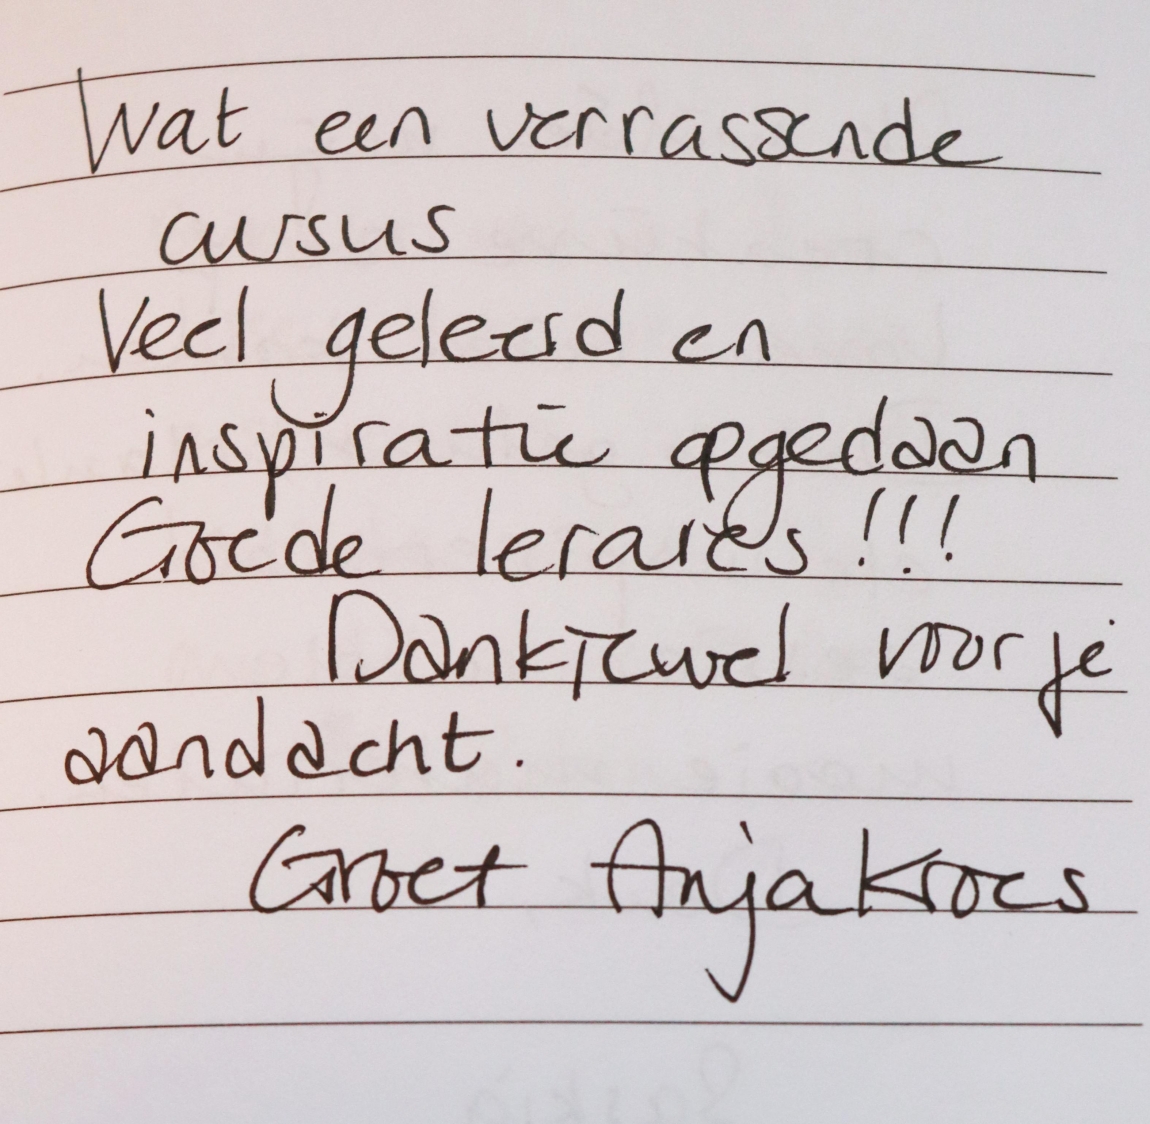 Wat een verrassende
cursus
Veel geleerd en
inspiratie opgedaan
Goede lerares!!!
Dankjewel voor je
aandacht.
Groet Anja Kroes